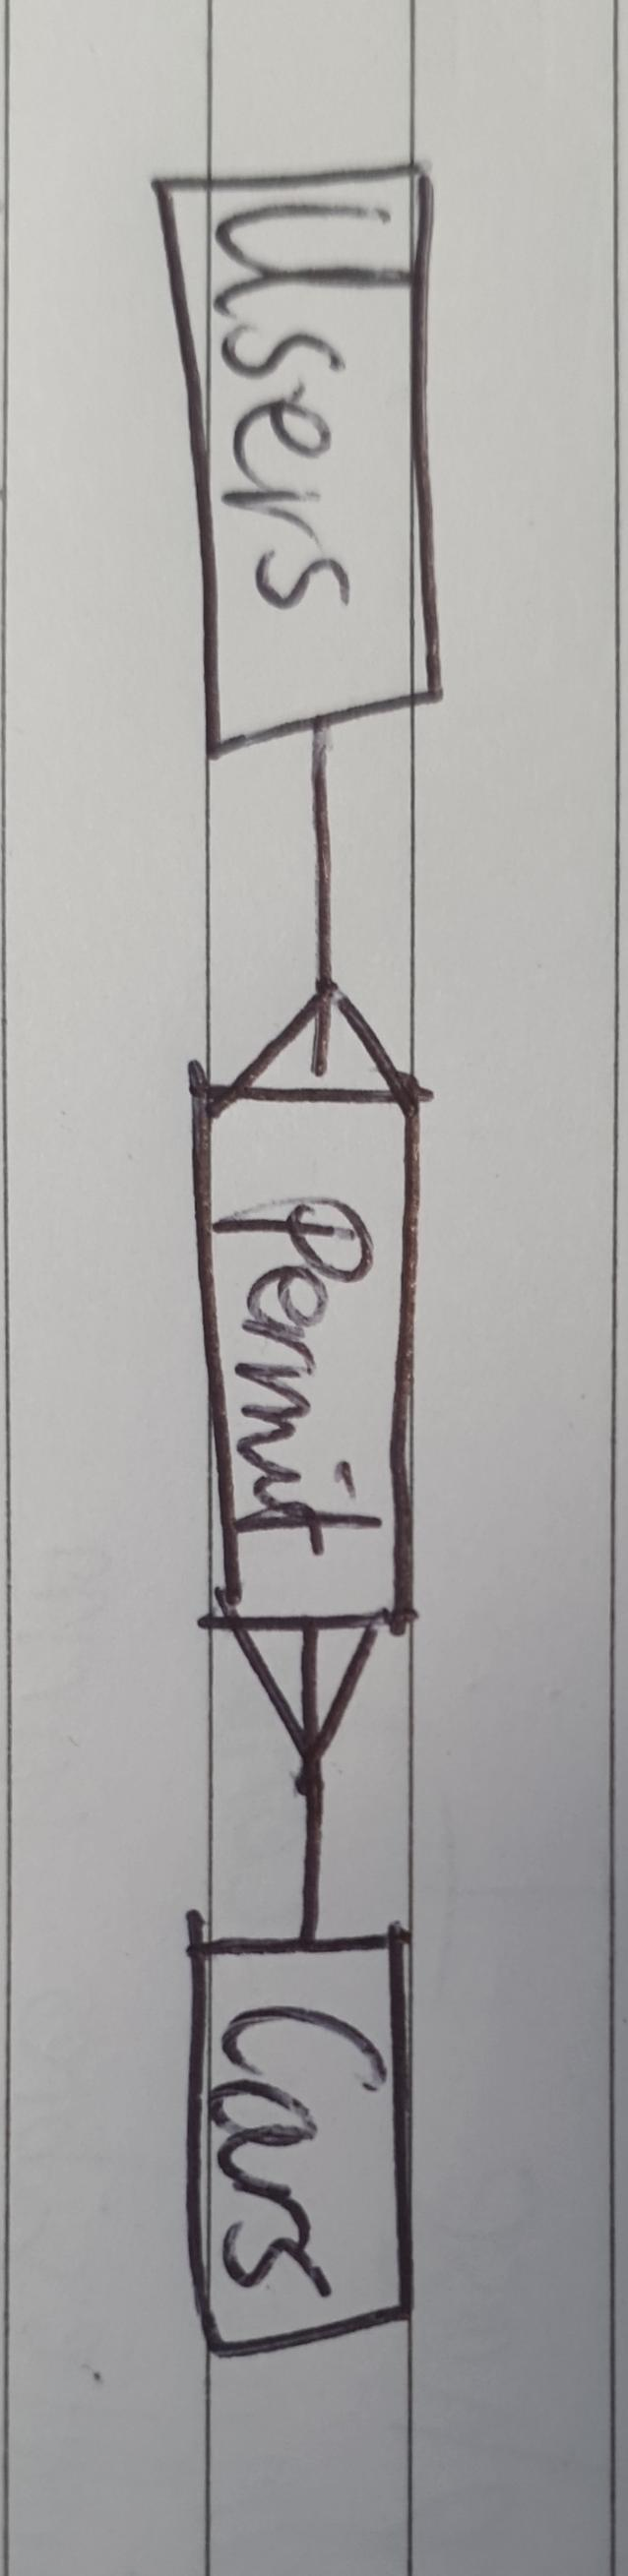 Users
Permit
Cars